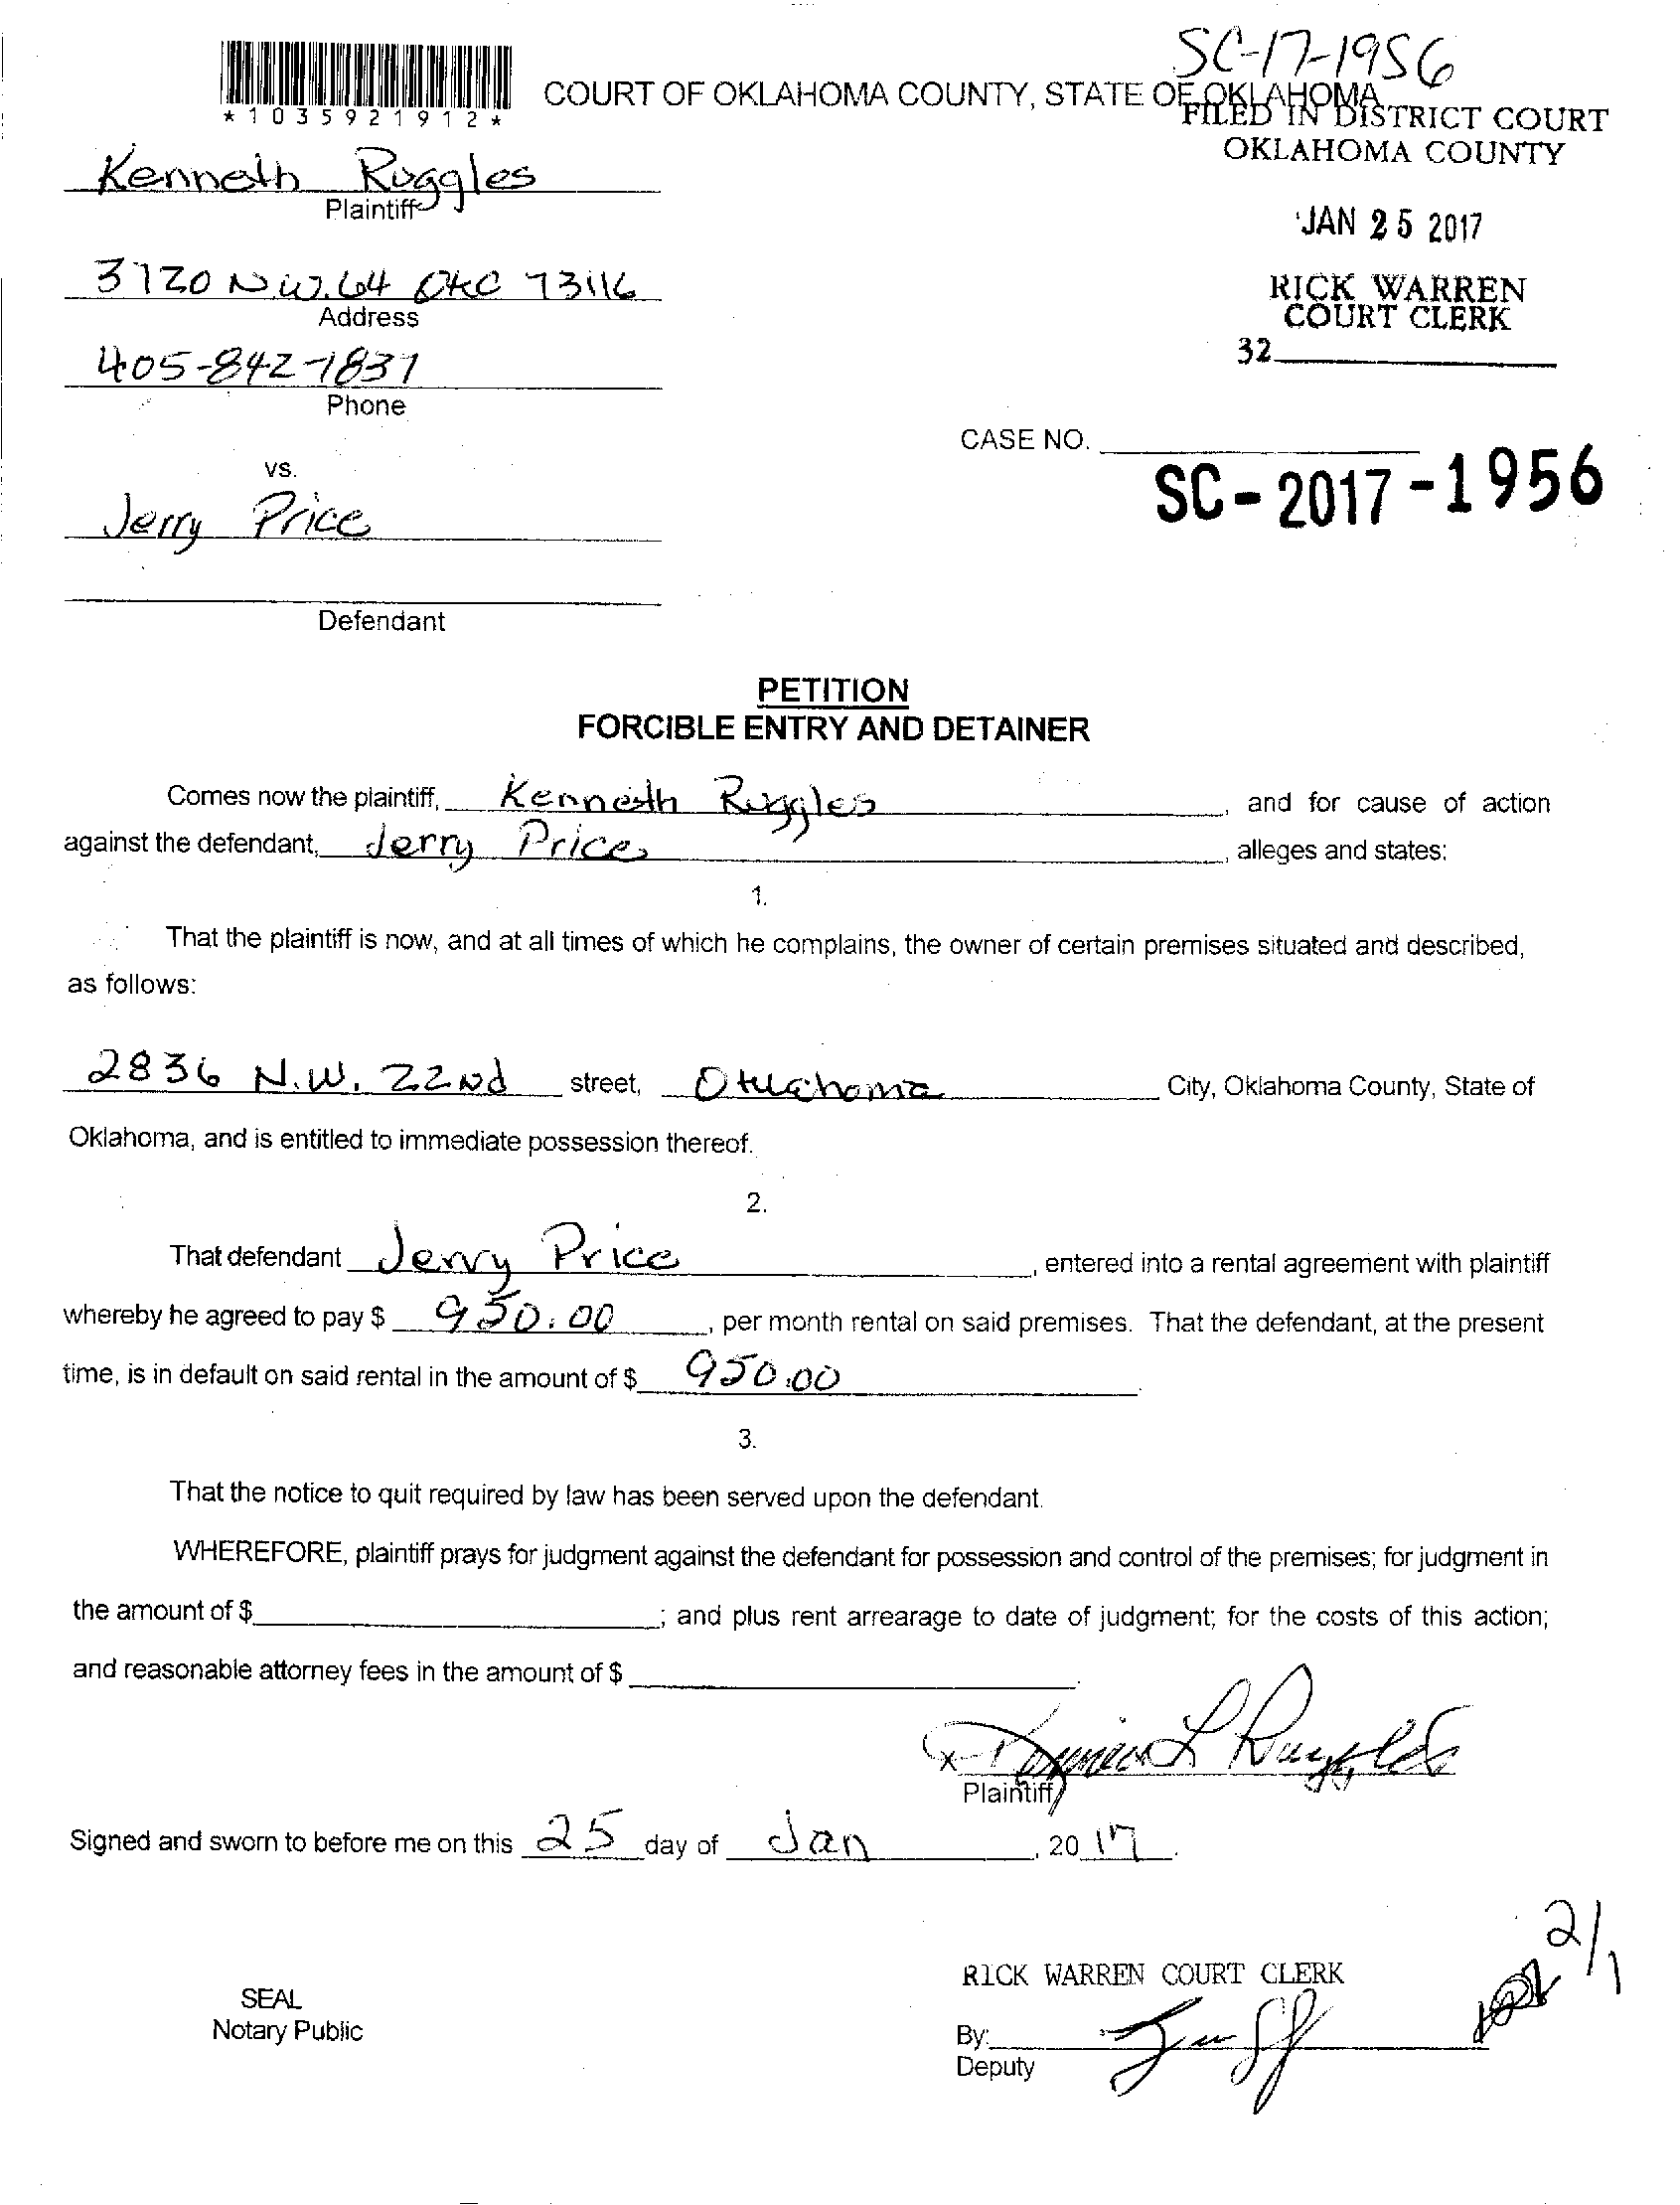 SC-17-1956
*1035921912*
COURT OF OKLAHOMA COUNTY, STATE OF OKLAHOMA
FILED IN DISTRICT COURT
OKLAHOMA COUNTY
Kenneth Ruggles
Plaintiff
JAN 25 2017
3720 N.W. 64 OKC 73116
Address
RICK WARREN
COURT CLERK
32
405-842-1837
Phone
CASE NO.
SC-2017-1956
vs.
Jerry Price
Defendant
PETITION
FORCIBLE ENTRY AND DETAINER
Comes now the plaintiff, Kenneth Ruggles, and for cause of action
against the defendant, Jerry Price, alleges and states:
1.
That the plaintiff is now, and at all times of which he complains, the owner of certain premises situated and described,
as follows:
2836 N.W. 22Nd street, Oklahoma City, Oklahoma County, State of
Oklahoma, and is entitled to immediate possession thereof.
2.
That defendant Jerry Price, entered into a rental agreement with plaintiff
whereby he agreed to pay $ 950.00, per month rental on said premises. That the defendant, at the present
time, is in default on said rental in the amount of $ 950.00.
3.
That the notice to quit required by law has been served upon the defendant.
WHEREFORE, plaintiff prays for judgment against the defendant for possession and control of the premises; for judgment in
the amount of $; and plus rent arrearage to date of judgment; for the costs of this action;
and reasonable attorney fees in the amount of $.
x
Plaintiff
Signed and sworn to before me on this 25 day of Jan, 2017.
2/1
RICK WARREN COURT CLERK
SEAL
Notary Public
By:
Deputy